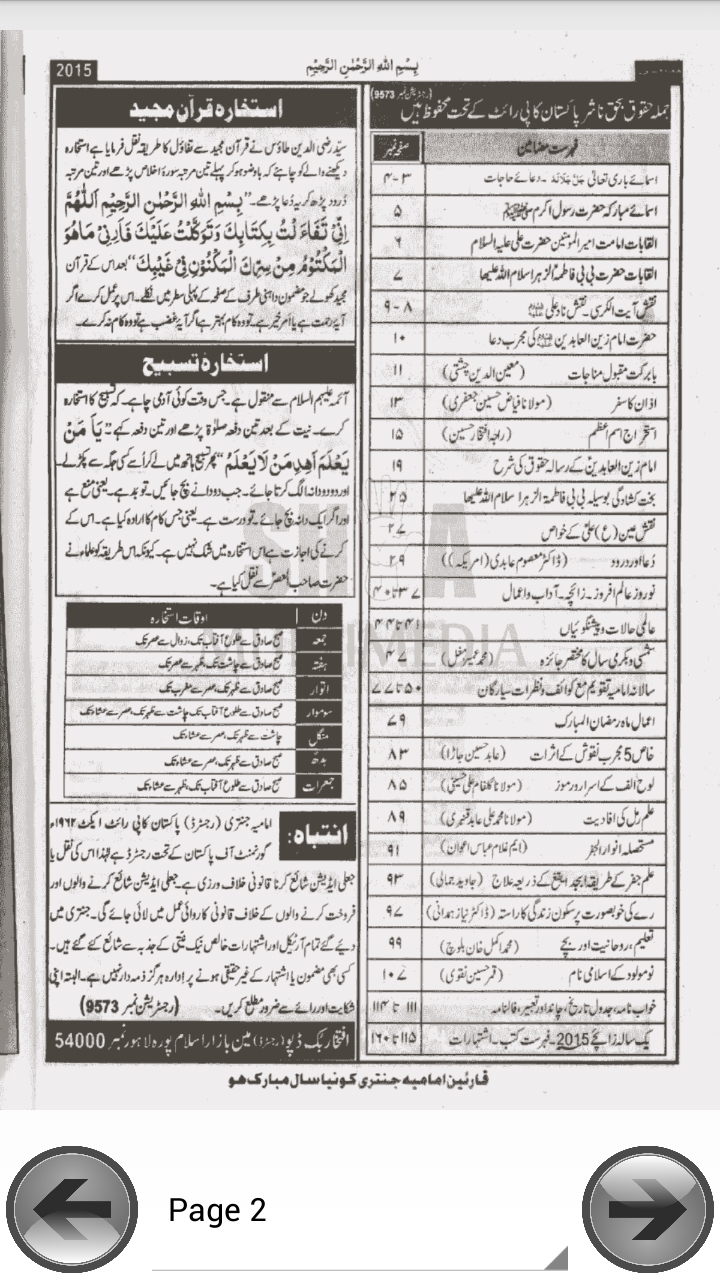 2015
بِسْمِ اللهِ الرَّحْمٰنِ الرَّحِيْمِ
جملہ حقوق بحق ناشر پاکستان کاپی رائٹ کے تحت محفوظ ہیں (رجسٹریشن نمبر 9573)
فہرست مضامین صفحہ نمبر
اسمائے باری تعالیٰ جل جلالہ ۔ دعائے حاجات ۳-۴
اسمائے مبارکہ حضرت رسول اکرم ﷺ ۵
القابات امامت امیر المومنین حضرت علی علیہ السلام ۶
القابات حضرت بی بی فاطمۃ الزہرا سلام اللہ علیھا ۷
نقش آیت الکرسی ۔ نقش ناد علی ۸-۹
حضرت امام زین العابدین کی مجرب دعا ۱۰
بابرکت مقبول مناجات (معین الدین چشتی) ۱۱
اذان کا سفر (مولانا فیاض حسین جعفری) ۱۳
استخراج اسم اعظم (راجہ افتخار حسین) ۱۵
امام زین العابدین کے رسالہ حقوق کی شرح ۱۹
بخت کشادگی بوسیلہ بی بی فاطمۃ الزہرا سلام اللہ علیھا ۲۵
نقش عین (ع) علی کے خواص ۲۷
دُعا اور درود (ڈاکٹر معصوم عابدی (امریکہ)) ۲۹
نوروز عالم افروز ۔ زائچہ ۔ آداب واعمال ۳۷ تا ۴۰
عالمی حالات و پیشنگوئیاں ۴۱ تا ۴۴
شمسی و بکرمی سال کا مختصر جائزہ ۴۷
سالانہ امامیہ تقویم مع کوائف و نظرات سیارگان ۵۰ تا ۷۷
اعمال ماہ رمضان المبارک ۷۹
خاص 5 مجرب نقوش کے اثرات (عابد حسین جاڑا) ۸۳
لوح الف کے اسرار و رموز ۸۵
علم رمل کی افادیت ۸۹
مستحصلہ انوار الجفر (ایم غلام عباس اعوان) ۹۱
علم جفر کے طریقہ ابجد ایقغ کے ذریعہ علاج (جاوید جمالی) ۹۳
رے کی خوبصورت پرسکون زندگی کا راستہ (ڈاکٹر نیاز ہمدانی) ۹۷
تعلیم، روحانیت اور بچے (محمد اکمل خان بلوچ) ۹۹
نومولود کے اسلامی نام (قمر حسین نقوی) ۱۰۷
خواب نامہ، جدول تاریخ، چاند اور تعبیر، فالنامہ ۱۱۱ تا ۱۱۴
یک سالہ زائچے 2015 ۔ فہرست کتب ۔ اشتہارات ۱۱۵ تا ۱۶۰
استخارہ قرآن مجید
سیّد رضی الدین طاؤس نے قرآن مجید سے تفاؤل کا طریقہ نقل فرمایا ہے استخارہ
دیکھنے والے کو چاہئے کہ باوضو ہو کر پہلے تین مرتبہ سورۂ اخلاص پڑھے اور تین مرتبہ
درود پڑھ کر یہ دُعا پڑھے۔ "بِسْمِ اللهِ الرَّحْمٰنِ الرَّحِيْمِ اَللّٰهُمَّ
اِنِّيْ تَفَاءَلْتُ بِكِتَابِكَ وَتَوَكَّلْتُ عَلَيْكَ فَاَرِنِيْ مَاهُوَ
الْمَكْتُوْمُ مِنْ سِرِّكَ الْمَكْنُوْنِ فِيْ غَيْبِكَ" بعد اس کے قرآن
مجید کھولے جو مضمون داہنی طرف کے صفحہ کے پہلی سطر میں نکلے۔ اس پر عمل کرے اگر
آیۂ رحمت ہے یا امر خیر ہے۔ تو وہ کام بہتر ہے اگر آیۂ غضب ہے تو وہ کام نہ کرے۔
استخارہٴ تسبیح
آئمہ علیہم السلام سے منقول ہے۔ جس وقت کوئی آدمی چاہے۔ کہ تسبیح کا استخارہ
کرے۔ نیت کے بعد تین دفعہ صلوٰۃ پڑھے اور تین دفعہ کہے "يَا مَنْ
يَعْلَمُ اَهْدِ مَنْ لَا يَعْلَمُ" پھر تسبیح ہاتھ میں لے کر اُسے کسی جگہ سے پکڑ لے۔
اور دو دو دانہ الگ کرتا جائے۔ جب دو دانے بچ جائیں۔ تو بد ہے۔ یعنی منع ہے
اور اگر ایک دانہ بچ جائے۔ تو درست ہے۔ یعنی جس کام کا ارادہ کیا ہے۔ اس کے
کرنے کی اجازت ہے اس استخارہ میں شک نہیں ہے۔ کیونکہ اس طریقہ کو علماء نے
حضرت صاحب العصر سے نقل کیا ہے۔
دن اوقات استخارہ
جمعہ صبح صادق سے طلوع آفتاب تک، زوال سے عصر تک
ہفتہ صبح صادق سے چاشت تک، ظہر سے عصر تک
اتوار صبح صادق سے ظہر تک، عصر سے مغرب تک
سوموار صبح صادق سے طلوع آفتاب تک چاشت سے ظہر تک، عصر سے عشاء تک
منگل چاشت سے ظہر تک، عصر سے عشاء تک
بدھ صبح صادق سے ظہر تک، عصر سے عشاء تک
جمعرات صبح صادق سے طلوع آفتاب تک، ظہر سے عشاء تک
انتباہ:
امامیہ جنتری (رجسٹرڈ) پاکستان کاپی رائٹ ایکٹ ۱۹۶۲ء
گورنمنٹ آف پاکستان کے تحت رجسٹرڈ ہے لہٰذا اس کی نقل یا
جعلی ایڈیشن شائع کرنا قانونی خلاف ورزی ہے۔ جعلی ایڈیشن شائع کرنے والوں اور
فروخت کرنے والوں کے خلاف قانونی کاروائی عمل میں لائی جائے گی۔ جنتری میں
دیئے گئے تمام آرٹیکل اور اشتہارات خالص نیک نیتی کے جذبہ سے شائع کئے گئے ہیں۔
کسی بھی مضمون یا اشتہار کے غیر حقیقی ہونے پر ادارہ ہرگز ذمہ دار نہیں ہے۔ البتہ اپنی
شکایت اور رائے سے ضرور مطلع کریں۔ (رجسٹریشن نمبر 9573)
افتخار بک ڈپو (رجسٹرڈ) مین بازار اسلام پورہ لاہور نمبر 54000
قارئین امامیہ جنتری کو نیا سال مبارک ہو
Page 2